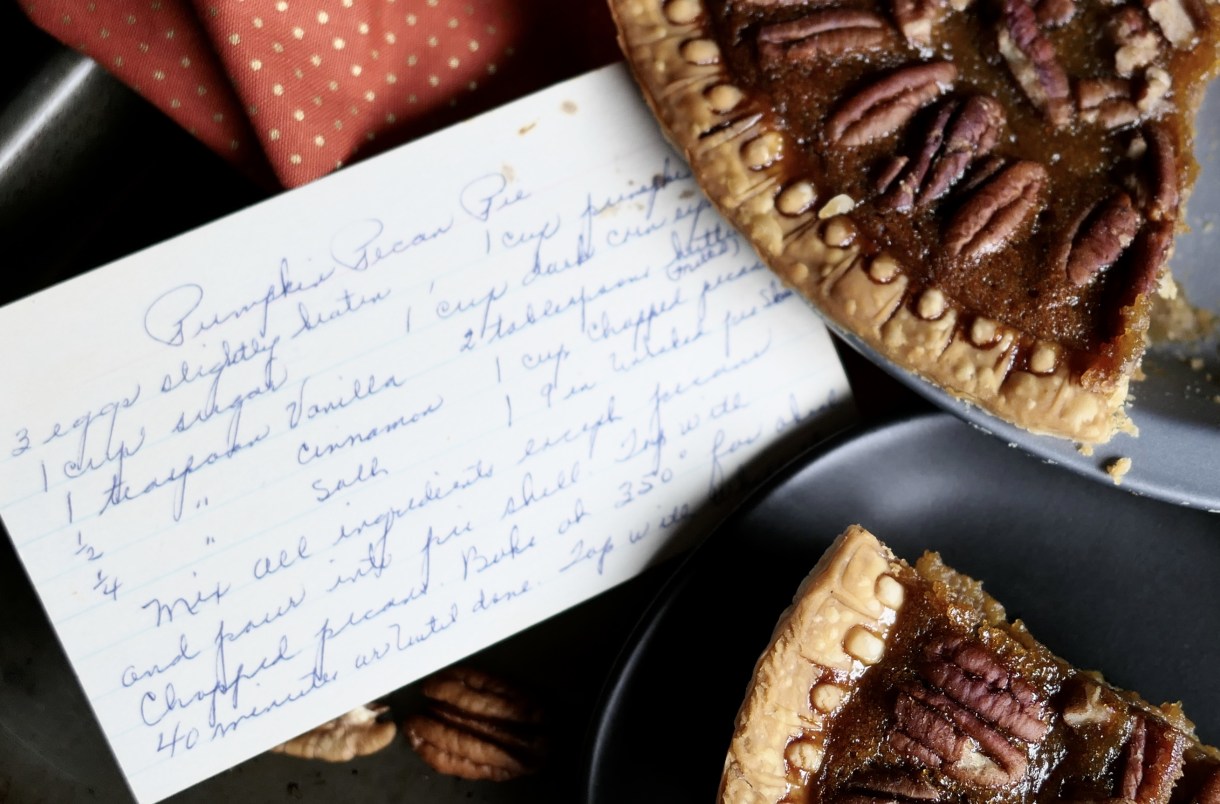 Pumpkin Pecan Pie
3 eggs slightly beaten 1 cup pumpkin
1 cup sugar 1 cup dark corn
1 teaspoon Vanilla 2 tablespoons butter
(melted)
½ " cinnamon 1 cup chopped pecans
¼ " Salt 1 9 in unbaken pie
Mix all ingredients except pecans
and pour into pie shell. Top with
Chopped pecans. Bake at 350° for about
40 minutes or until done. Top with